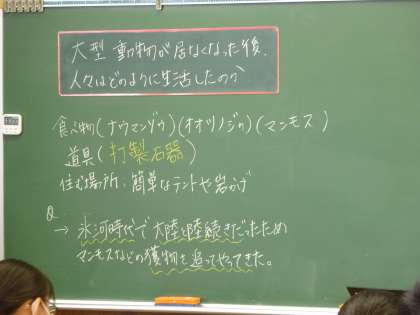 大型動物が居なくなった後、
人々はどのように生活したのか
食べ物(ナウマンゾウ)(オオツノジカ)(マンモス)
道具(打製石器)
住む場所:簡単なテントや岩かげ
Q
→ 氷河時代で大陸と陸続きだったため
マンモスなどの獲物を追ってやってきた。